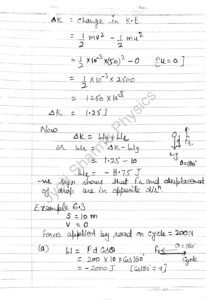 ΔK = change in K.E
= 1/2 mv² - 1/2 mu²
= 1/2 × 10⁻³ × (50)² - 0 [u = 0]
= 1/2 × 10⁻³ × 2500
= 1.250 × 10⁻³
ΔK = 1.25 J
Now
ΔK = Wg + WR
or WR = ΔK - Wg
= 1.25 - 10
WR = - 8.75 J
θ = 180°
-ve sign shows that FR and displacement
of drop are in opposite dirⁿ
Example 6.3
S = 10 m
V = 0
Forces applied by road on cycle = 200 N
(a) W = F d Cosθ
= 200 × 10 × Cos 180°
= -2000 J [Cos 180° = -1]
θ = 180°
Cycle
Jyoti Sharma Physics